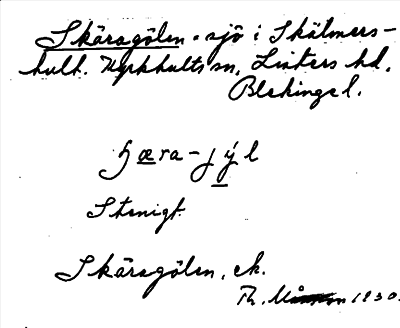 Skäragölen. sjö i Skälmers-
hult. Kyrkhults sn, Listers hd,
Blekinge l.
ʃæra-jýl
Stenigt.
Skäragölen, ek.
Th. 1930.